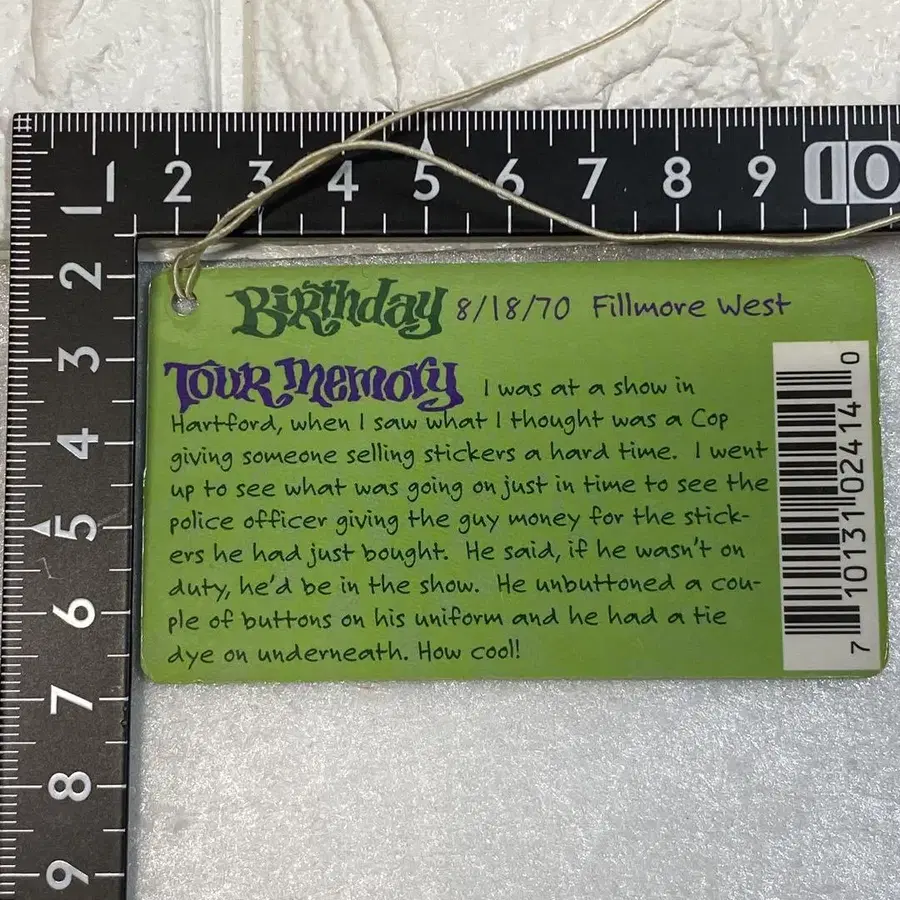 1 2 3 4 5 6 7 8 9 10
1
2
3
4
5
6
7
8
9
Birthday 8/18/70 Fillmore West
Tour Memory I was at a show in
Hartford, when I saw what I thought was a Cop
giving someone selling stickers a hard time. I went
up to see what was going on just in time to see the
police officer giving the guy money for the stick-
ers he had just bought. He said, if he wasn't on
duty, he'd be in the show. He unbuttoned a cou-
ple of buttons on his uniform and he had a tie
dye on underneath. How cool!
7 10131 02414 0